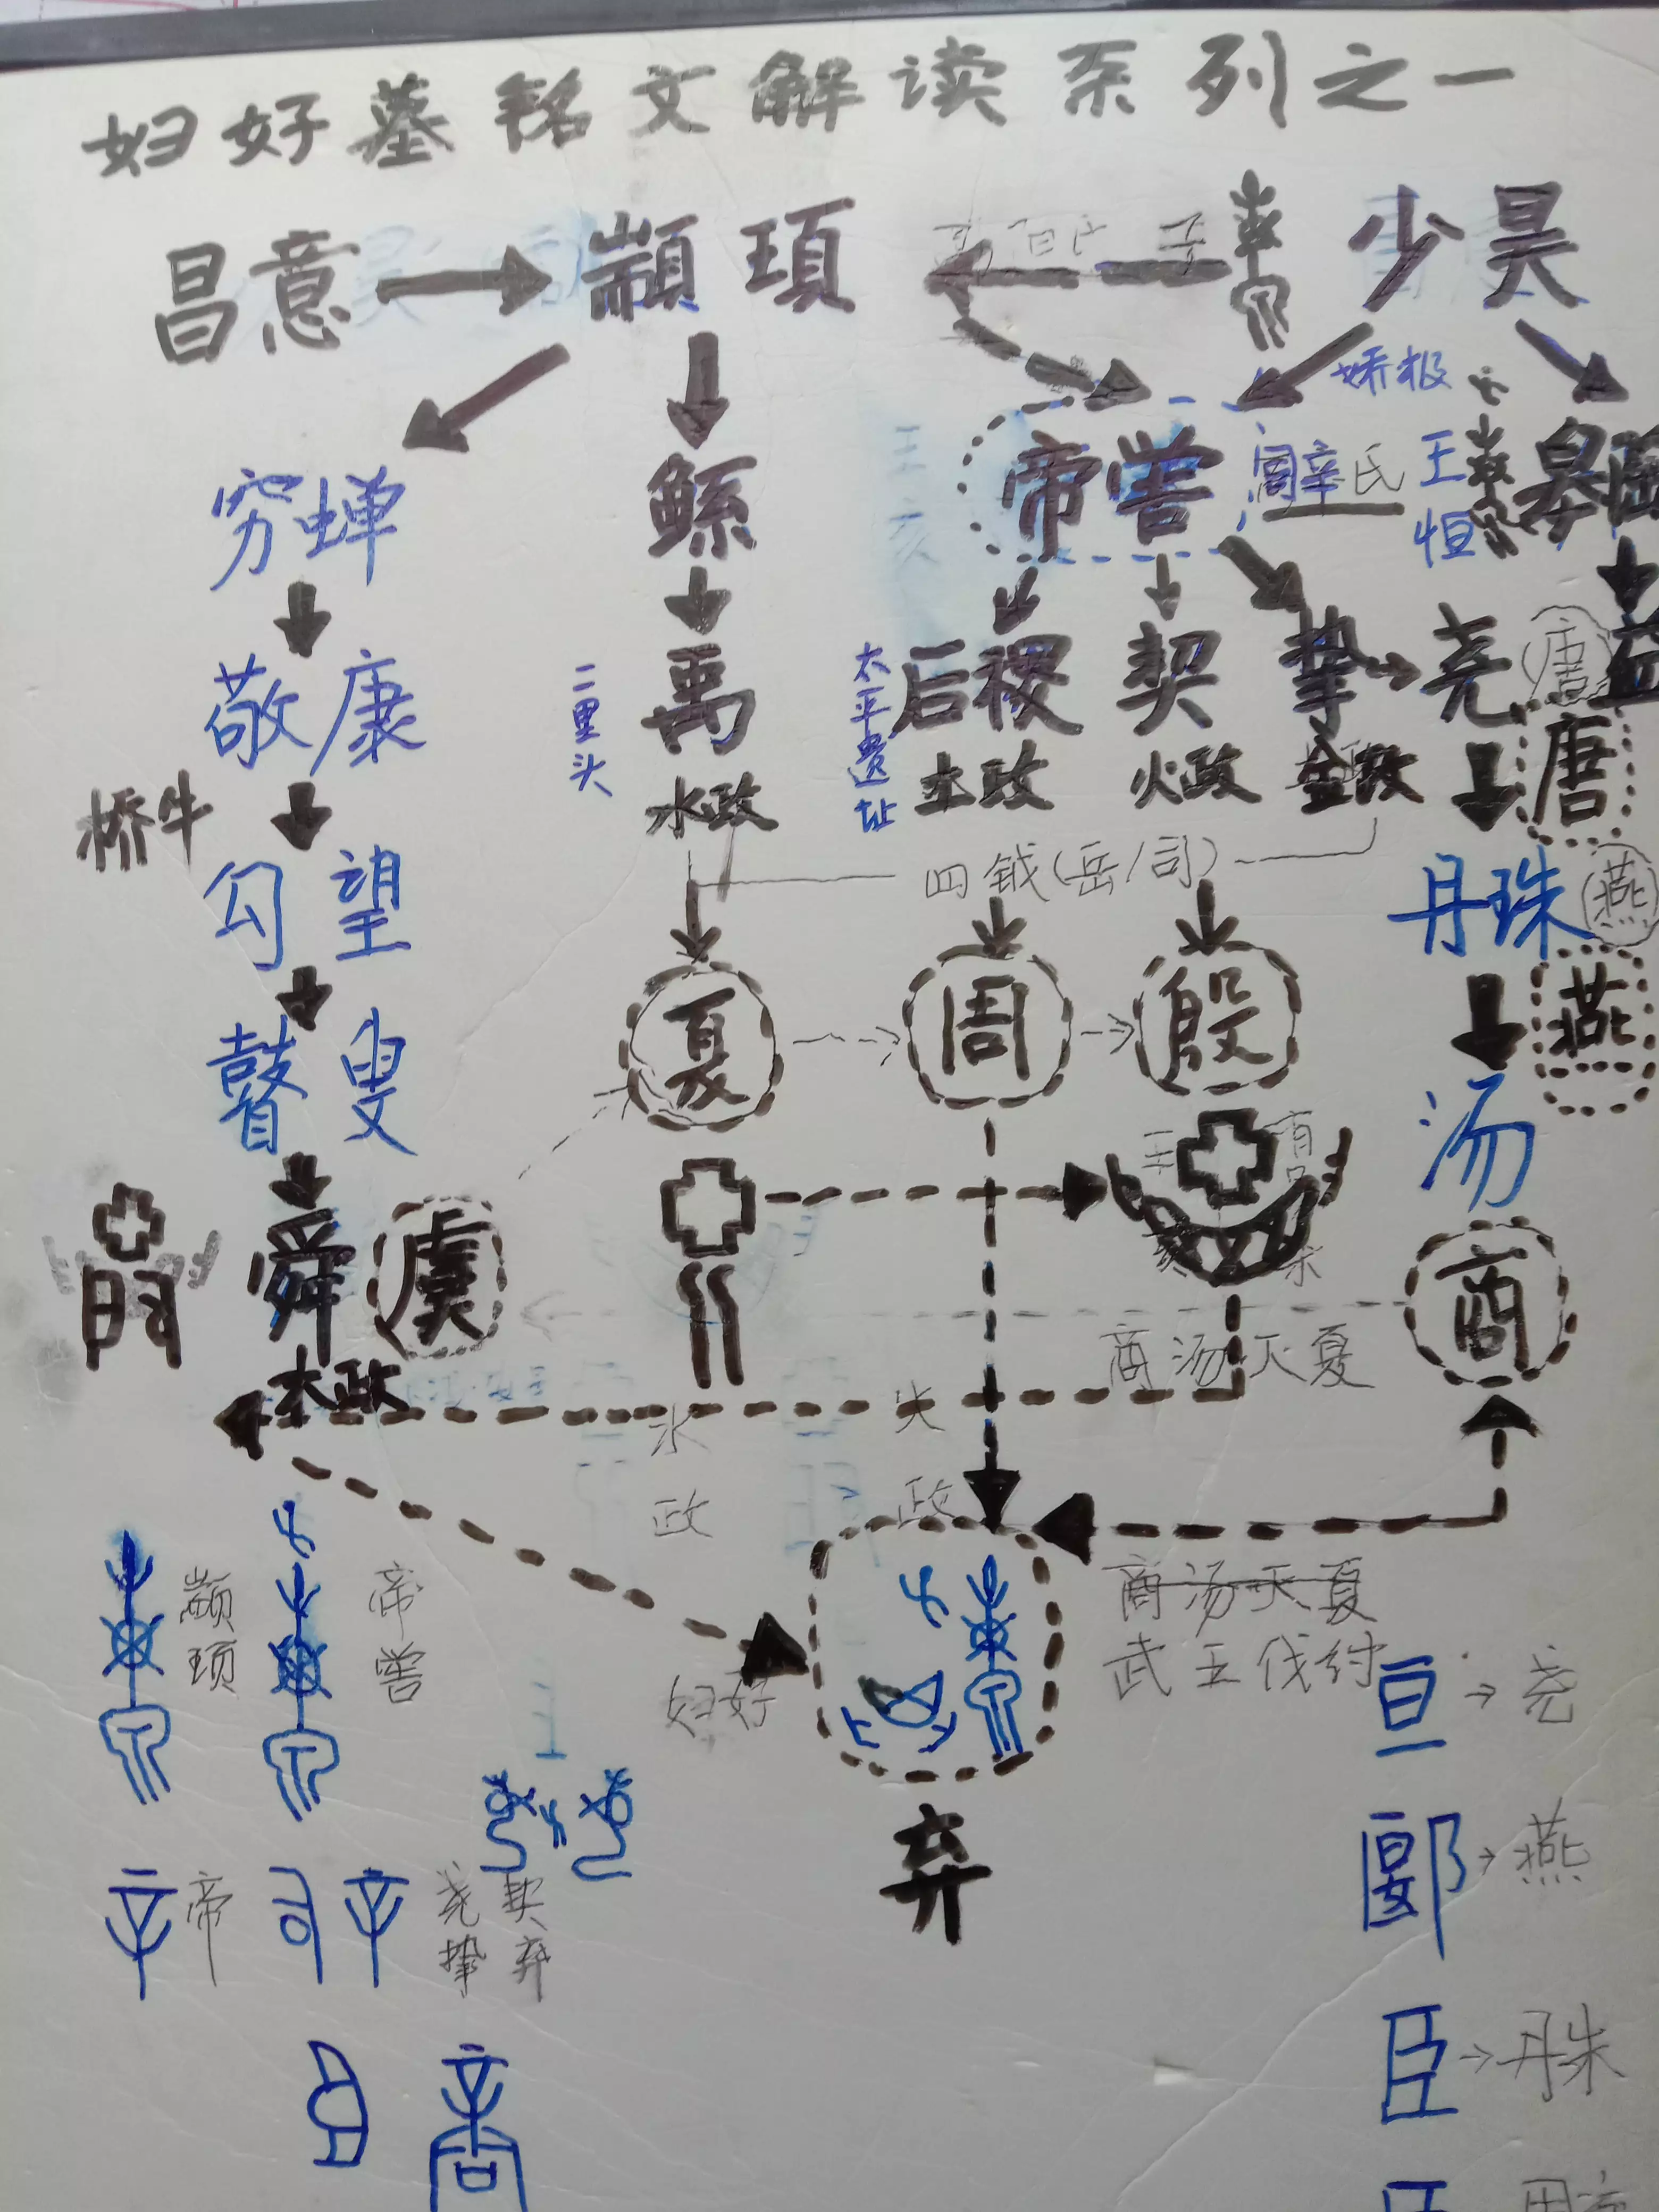 妇好墓铭文解读系列之一
昌意 顓頊 少昊
娇极
穷蝉 鲧 帝喾 高辛氏 王恒 皋陶
敬康 二里头 禹 太平遗址 后稷 契 挚 尧 唐 益
唐
桥牛 水政 土政 火政 金政
四钺(岳/司)
勾望 丹珠 燕
瞽叟 夏 周 殷 燕
汤
舜 虞 商
木政
商汤灭夏
水政 火政
商汤灭夏
武王伐纣
颛顼 帝喾
妇好
亘 → 尧
弃
郾 → 燕
帝 司辛 尧挚 契弃
臣 → 丹朱